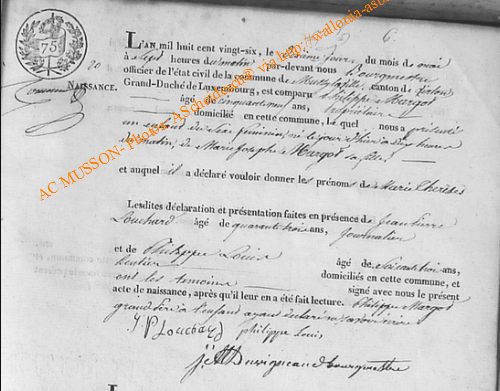 75
20
NAISSANCE.
6
L'AN mil huit cent vingt-six, le jour du mois de mai
à sept heures du matin par-devant nous Bourgmestre
officier de l'état civil de la commune de canton de Virton
Grand-Duché de Luxembourg, est comparu Philippe Margot
âgé de cinquante ans,
domicilié en cette commune, Lequel nous a présenté
un enfant du sexe féminin, né le jour d'hier à heures
du matin, de Marie Josephe Margot sa fille
et auquel il a déclaré vouloir donner les prénoms de Marie Therèse
Lesdites déclaration et présentation faites en présence de Jean Pierre
Louchard âgé de quarante trois ans, journalier
et de Philippe Louis âgé de soixante trois ans,
rentier domiciliés en cette commune, et
ont les témoins signé avec nous le présent
acte de naissance, après qu'il leur en a été fait lecture. Philippe Margot
grand père à l'enfant ayant déclaré ne savoir écrire
J. P. Louchard philippe Louis
Duvigneaud bourgmestre
AC MUSSON- Photos AScha via http://wallonia-as